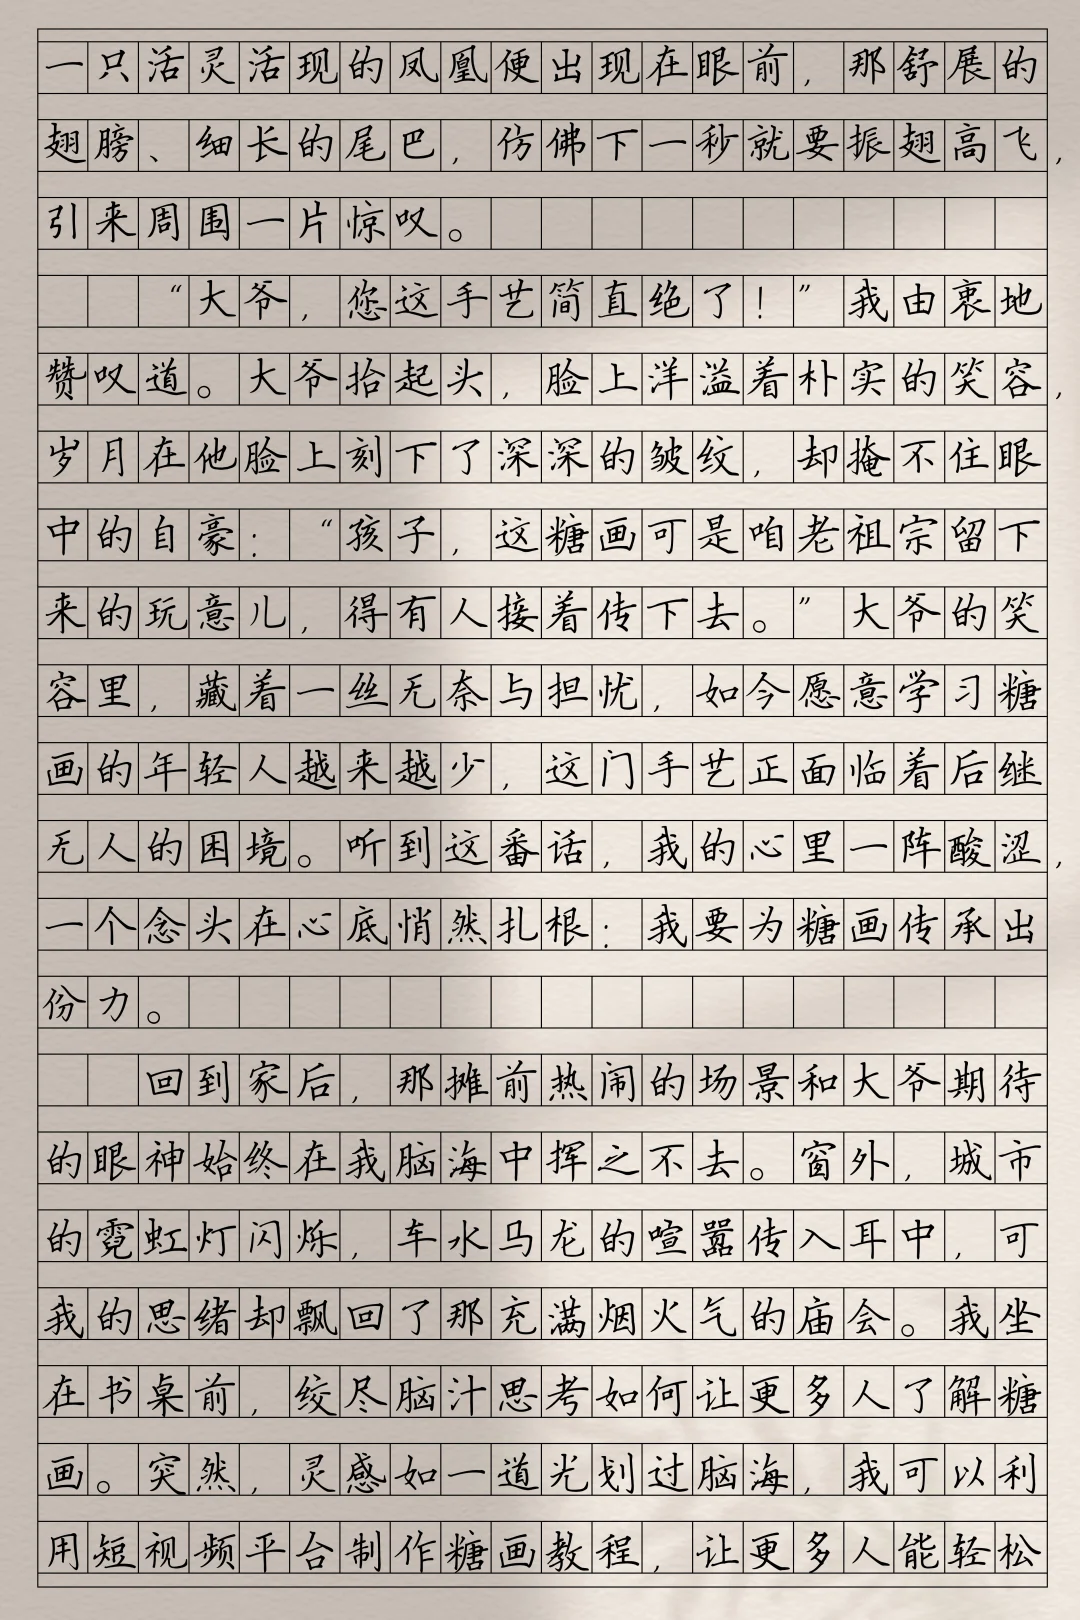 一只活灵活现的凤凰便出现在眼前，那舒展的
翅膀、细长的尾巴，仿佛下一秒就要振翅高飞，
引来周围一片惊叹。
“大爷，您这手艺简直绝了！”我由衷地
赞叹道。大爷抬起头，脸上洋溢着朴实的笑容，
岁月在他脸上刻下了深深的皱纹，却掩不住眼
中的自豪：“孩子，这糖画可是咱老祖宗留下
来的玩意儿，得有人接着传下去。”大爷的笑
容里，藏着一丝无奈与担忧，如今愿意学习糖
画的年轻人越来越少，这门手艺正面临着后继
无人的困境。听到这番话，我的心里一阵酸涩，
一个念头在心底悄然扎根：我要为糖画传承出
份力。
回到家后，那摊前热闹的场景和大爷期待
的眼神始终在我脑海中挥之不去。窗外，城市
的霓虹灯闪烁，车水马龙的喧嚣传入耳中，可
我的思绪却飘回了那充满烟火气的庙会。我坐
在书桌前，绞尽脑汁思考如何让更多人了解糖
画。突然，灵感如一道光划过脑海，我可以利
用短视频平台制作糖画教程，让更多人能轻松